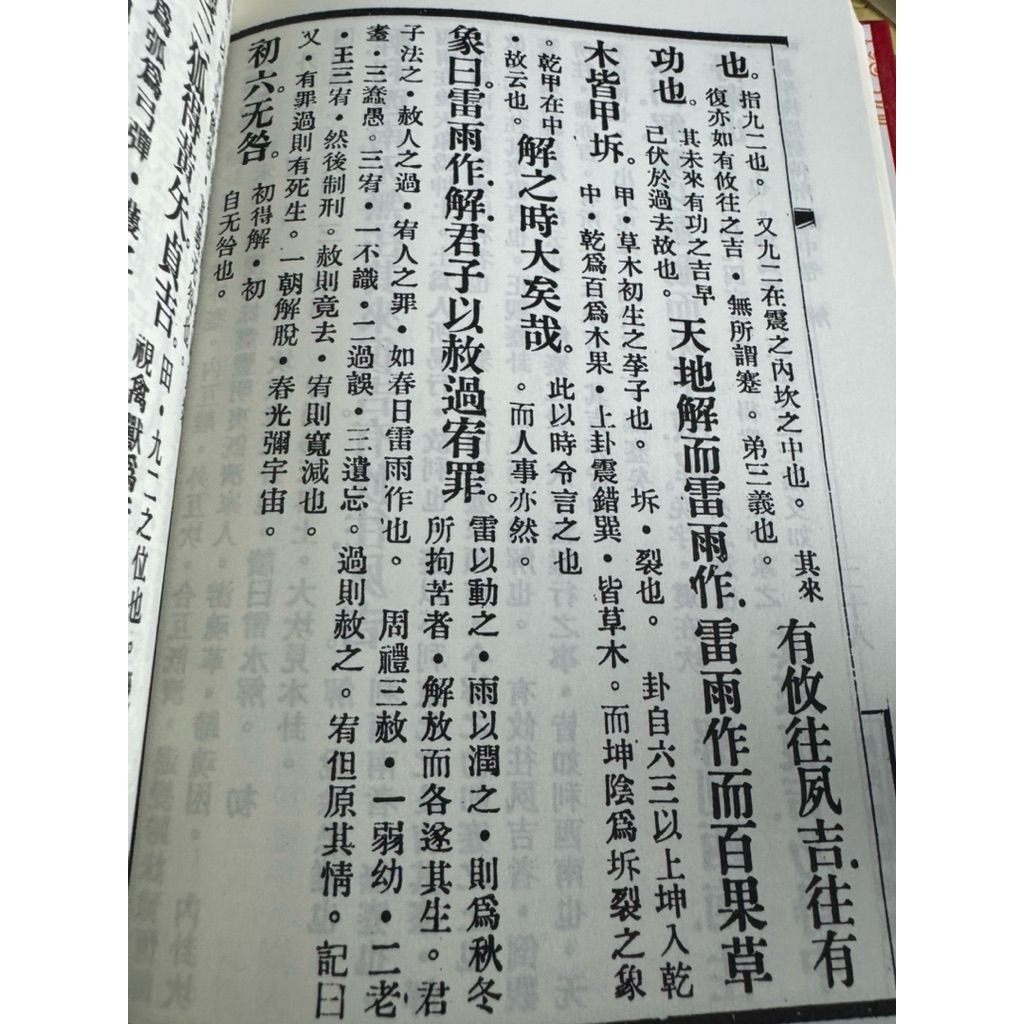 也。
指九二也。　又九二在震之內坎之中也。　其來
復亦如有攸往之吉・無所謂蹇。　弟三義也。
有攸往夙吉.往有
功也。
其未來有功之吉早
已伏於過去故也。
天地解而雷雨作.雷雨作而百果草
木皆甲坼。
甲・草木初生之莩子也。　坼・裂也。　卦自六三以上坤入乾
中・乾爲百爲木果・上卦震錯巽・皆草木。而坤陰爲坼裂之象
。乾甲在中
・故云也。
解之時大矣哉。
此以時令言之也
。而人事亦然。
象曰。雷雨作.解.君子以赦過宥罪。
雷以動之・雨以潤之・則爲秋冬
所拘苦者・解放而各遂其生。君
子法之・赦人之過・宥人之罪・如春日雷雨作也。　周禮三赦・一弱幼・二老
耄・三蠢愚。三宥・一不識・二過誤・三遺忘。過則赦之。宥但原其情。記曰
・王三宥・然後制刑。赦則竟去・宥則寬減也。
又・有罪過則有死生。一朝解脫・春光彌宇宙。
初六无咎。
初得解・初
自无咎也。
三狐得黃矢.貞吉。
田・九二之位也。
視禽獸爲
爲狐爲弓彈・